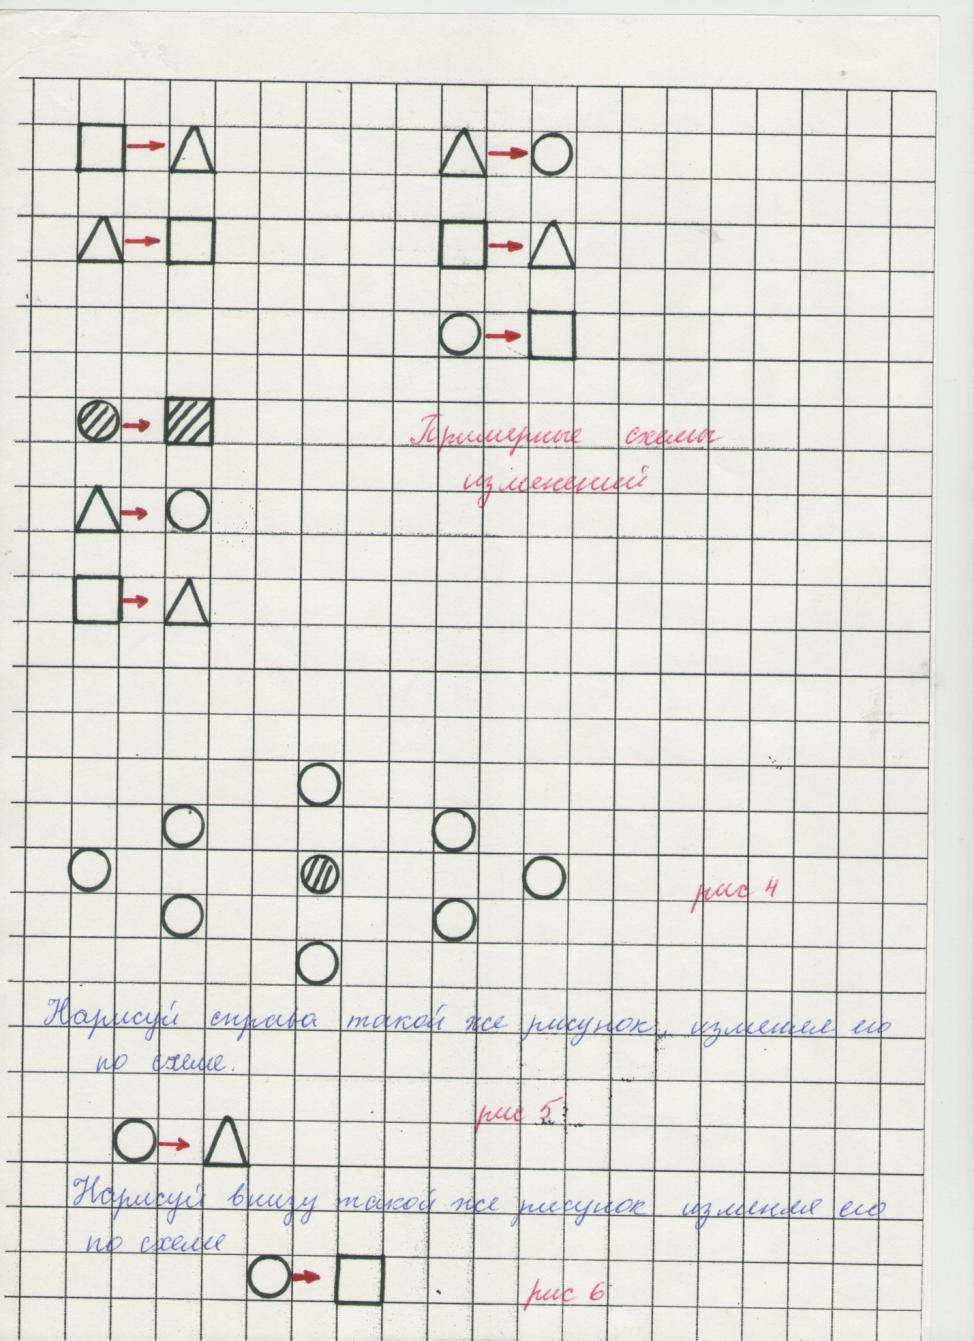 Примерные схемы
изменений
рис 4
Нарисуй справа такой же рисунок, изменяя его
по схеме.
рис 5
Нарисуй внизу такой же рисунок изменяя его
по схеме
рис 6